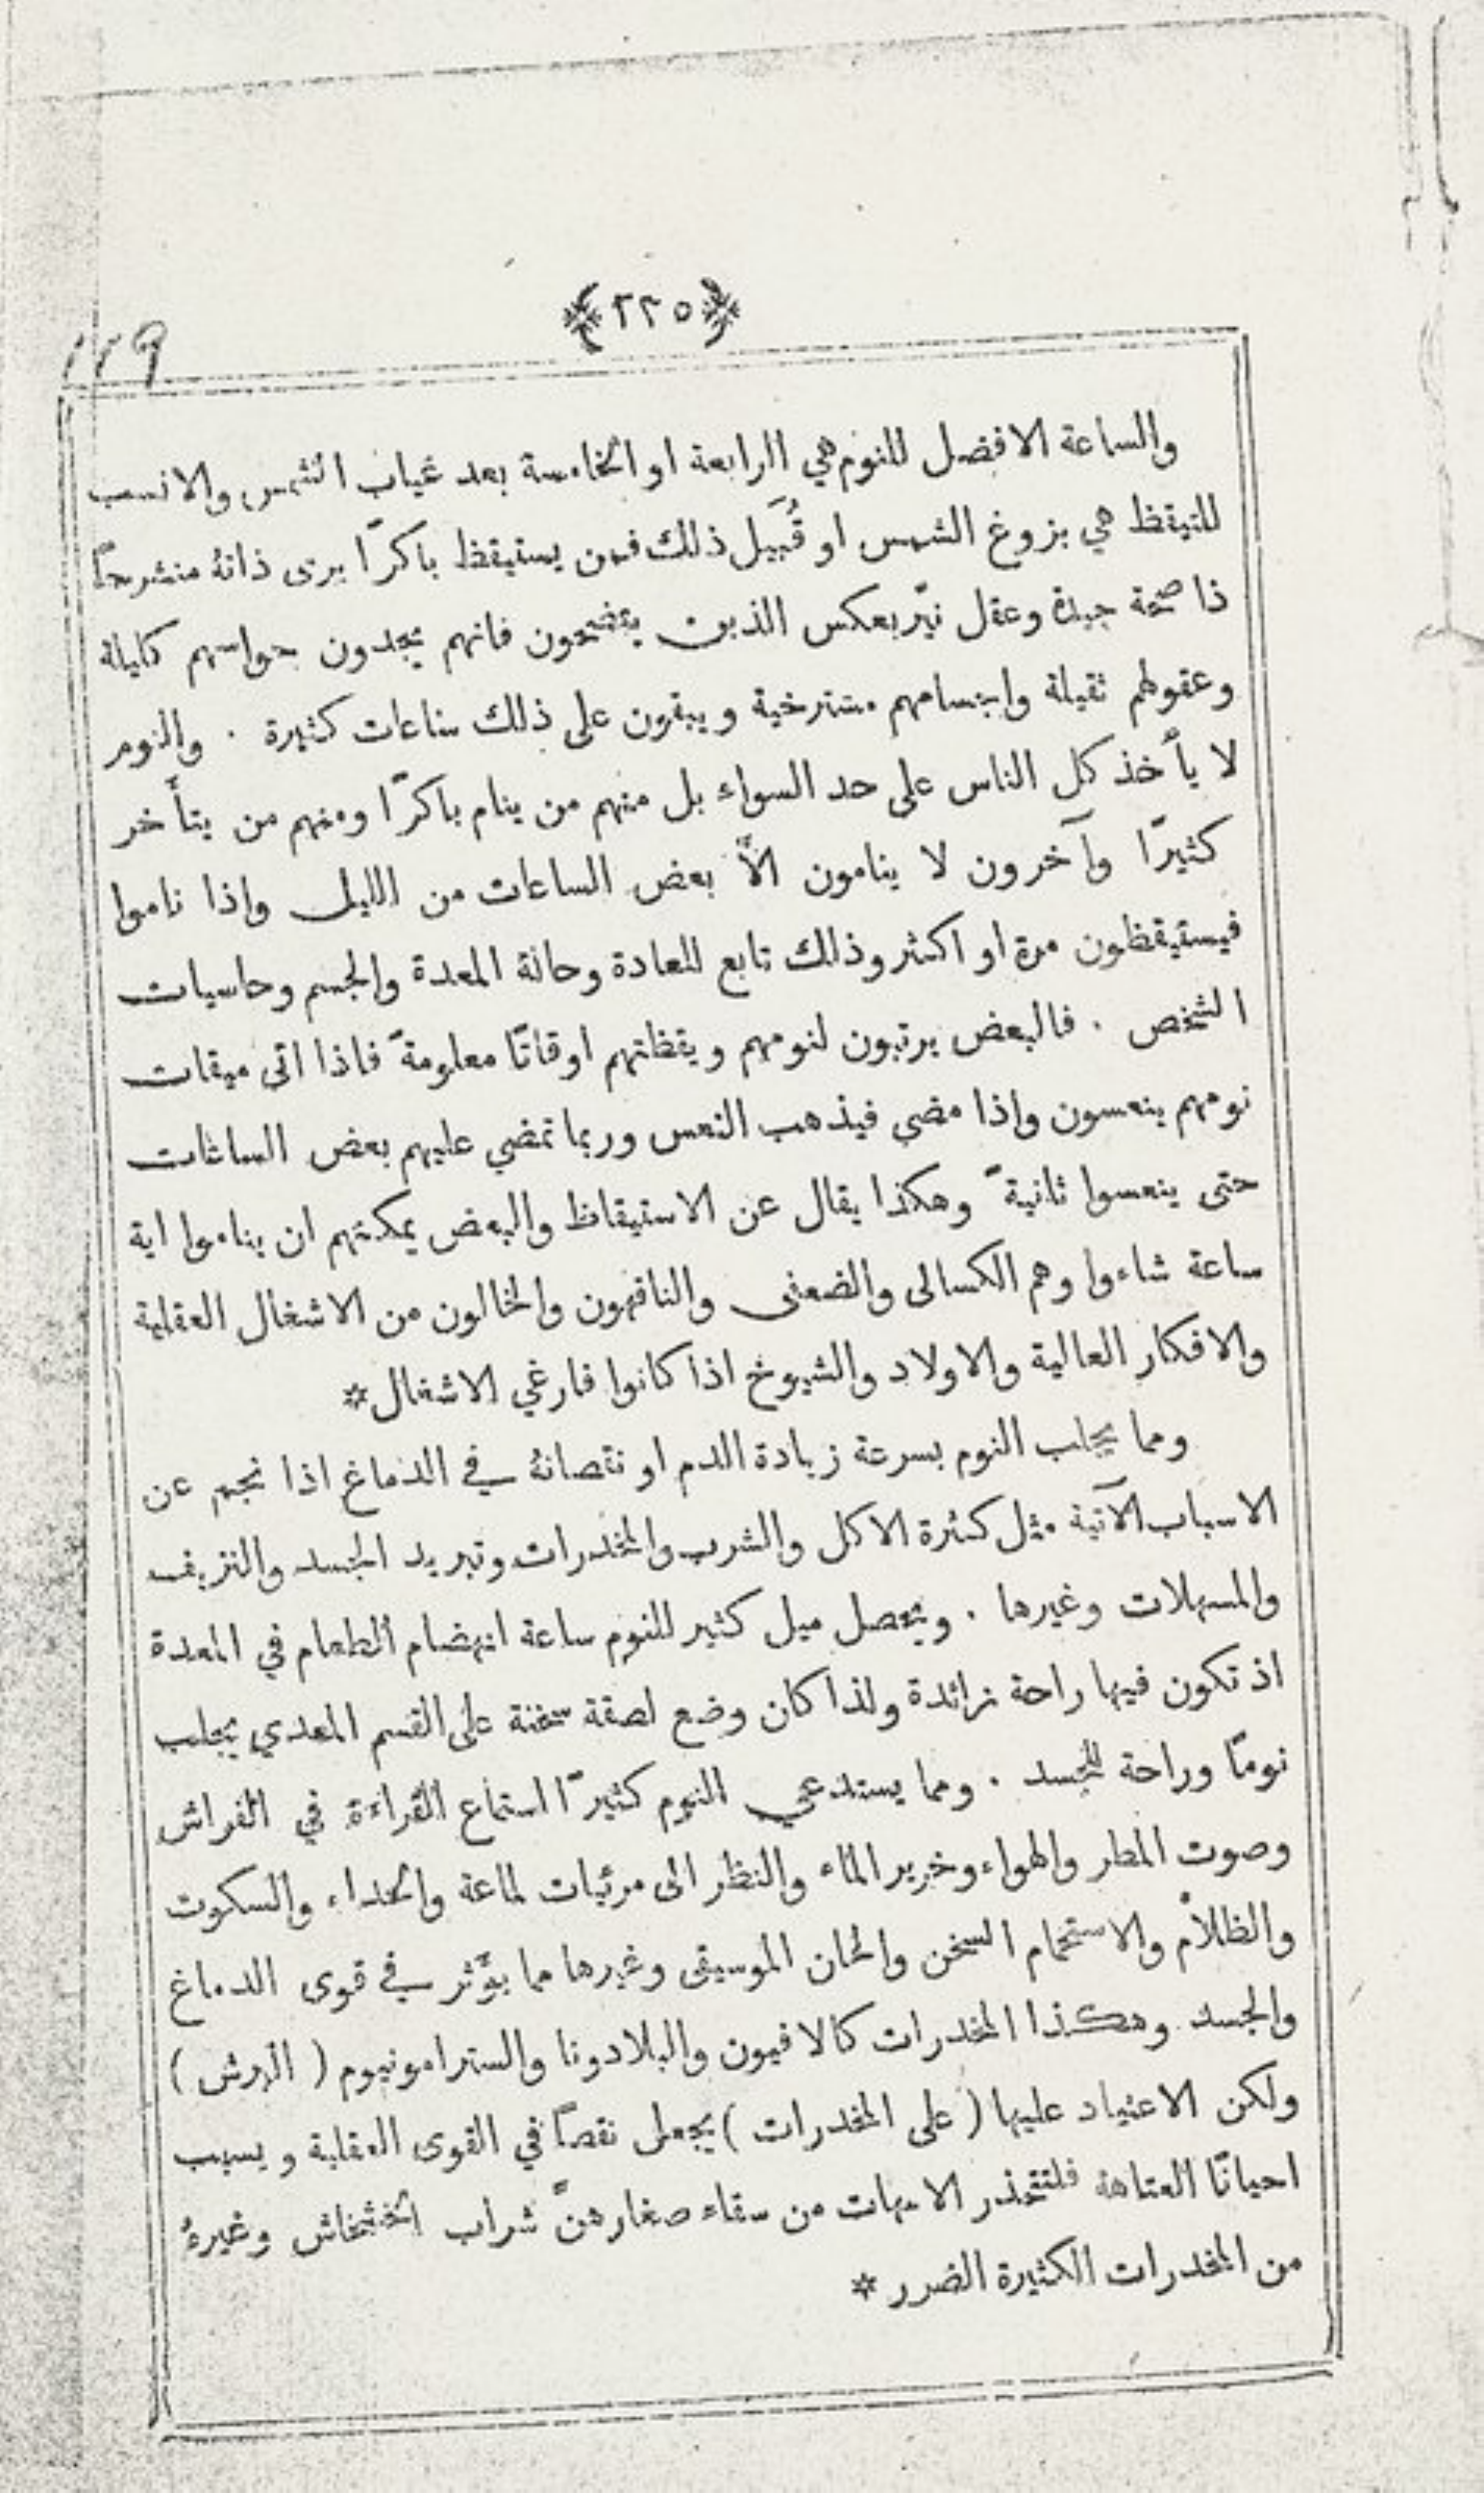 ﴿٢٢٥﴾
119
والساعة الافضل للنوم هي الرابعة او الخامسة بعد غياب الشمس والانسب
للتيقظ هي بزوغ الشمس او قُبَيل ذلك فمن يستيقظ باكرًا يرى ذاتهُ منشرحًا
ذا صحة جيدة وعقل نيّر بعكس الذين يتضحون فانهم يجدون حواسهم كليلة
وعقولهم ثقيلة واجسامهم مسترخية ويبقون على ذلك ساعات كثيرة . والنوم
لا يأخذ كل الناس على حد السواء بل منهم من ينام باكرًا ومنهم من يتأخر
كثيرًا وآخرون لا ينامون الاَّ بعض الساعات من الليل واذا ناموا
فيستيقظون مرة او اكثر وذلك تابع للعادة وحالة المعدة والجسم وحاسيات
الشخص . فالبعض يرتبون لنومهم ويقظتهم اوقاتًا معلومةً فاذا اتى ميقات
نومهم ينعسون واذا مضى فيذهب النعس وربما تمضي عليهم بعض الساعات
حتى ينعسوا ثانيةً وهكذا يقال عن الاستيقاظ والبعض يمكنهم ان يناموا اية
ساعة شاءوا وهم الكسالى والضعفى والناقهون والخالون من الاشغال العقلية
والافكار العالية والاولاد والشيوخ اذا كانوا فارغي الاشغال*
ومما يجلب النوم بسرعة زيادة الدم او نقصانهُ في الدماغ اذا نجم عن
الاسباب الآتية مثل كثرة الاكل والشرب والمخدرات وتبريد الجسد والنزيف
والمسهلات وغيرها . ويحصل ميل كثير للنوم ساعة انهضام الطعام في المعدة
اذ تكون فيها راحة زائدة ولذا كان وضع لصقة سخنة على القسم المعدي يجلب
نومًا وراحة للجسد . ومما يستدعي النوم كثيرًا استماع القراءة في الفراش
وصوت المطر والهواء وخرير الماء والنظر الى مرئيات لماعة والحداء والسكوت
والظلام والاستحمام السخن والحان الموسيقى وغيرها مما يؤثر في قوى الدماغ
والجسد وهكذا المخدرات كالافيون والبلادونا والسترامونيوم ( البرش )
ولكن الاعتياد عليها ( على المخدرات ) يجعل نقصًا في القوى العقلية ويسبب
احيانًا العتاهة فلتتحذر الامهات من سقاء صغارهنَّ شراب الخشخاش وغيرهُ
من المخدرات الكثيرة الضرر *